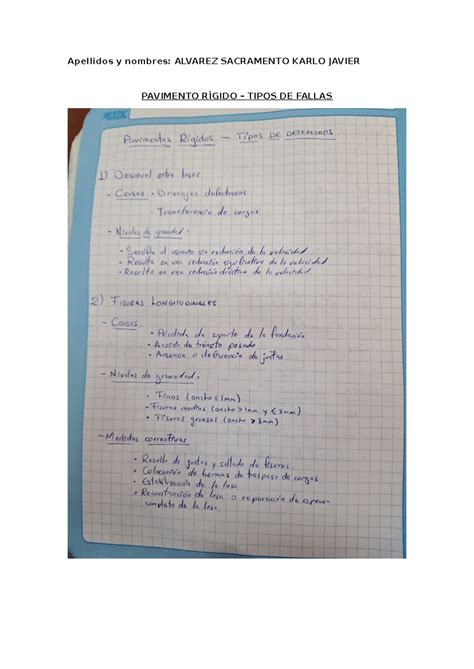 Apellidos y nombres: ALVAREZ SACRAMENTO KARLO JAVIER
PAVIMENTO RÍGIDO – TIPOS DE FALLAS
Pavimentos Rígidos — Tipos DE DETERIOROS
1) Desnivel entre losas
- Causas • Drenajes defectuosos
• Transferencia de cargas.
- Niveles de gravedad:
• Sensible al usuario sin reducción de la velocidad
• Resulta en una reducción significativa de la velocidad
• Resulta en una reducción drástica de la velocidad.
2) FISURAS LONGITUDINALES
- Causas
• Pérdida de soporte de la fundación
• Acción de tránsito pesado
• Ausencia o deficiencia de juntas
- Niveles de gravedad:
• Finas (ancho ≤ 1mm)
• Fisuras medias (ancho > 1mm y ≤ 3mm)
• Fisuras gruesas (ancho > 3mm)
- Medidas correctivas
• Resello de juntas y sellado de fisuras
• Colocación de bermas de traspaso de cargas
• Estabilización de la losa
• Reconstrucción de losa o reparación de espesor
completo de la losa.